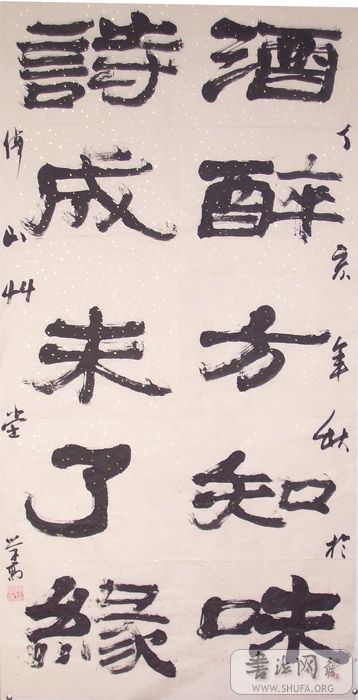 酒醉方知味
詩成未了緣
丁亥年秋於
佛山艸堂
书法网
WWW.SHUFA.ORG